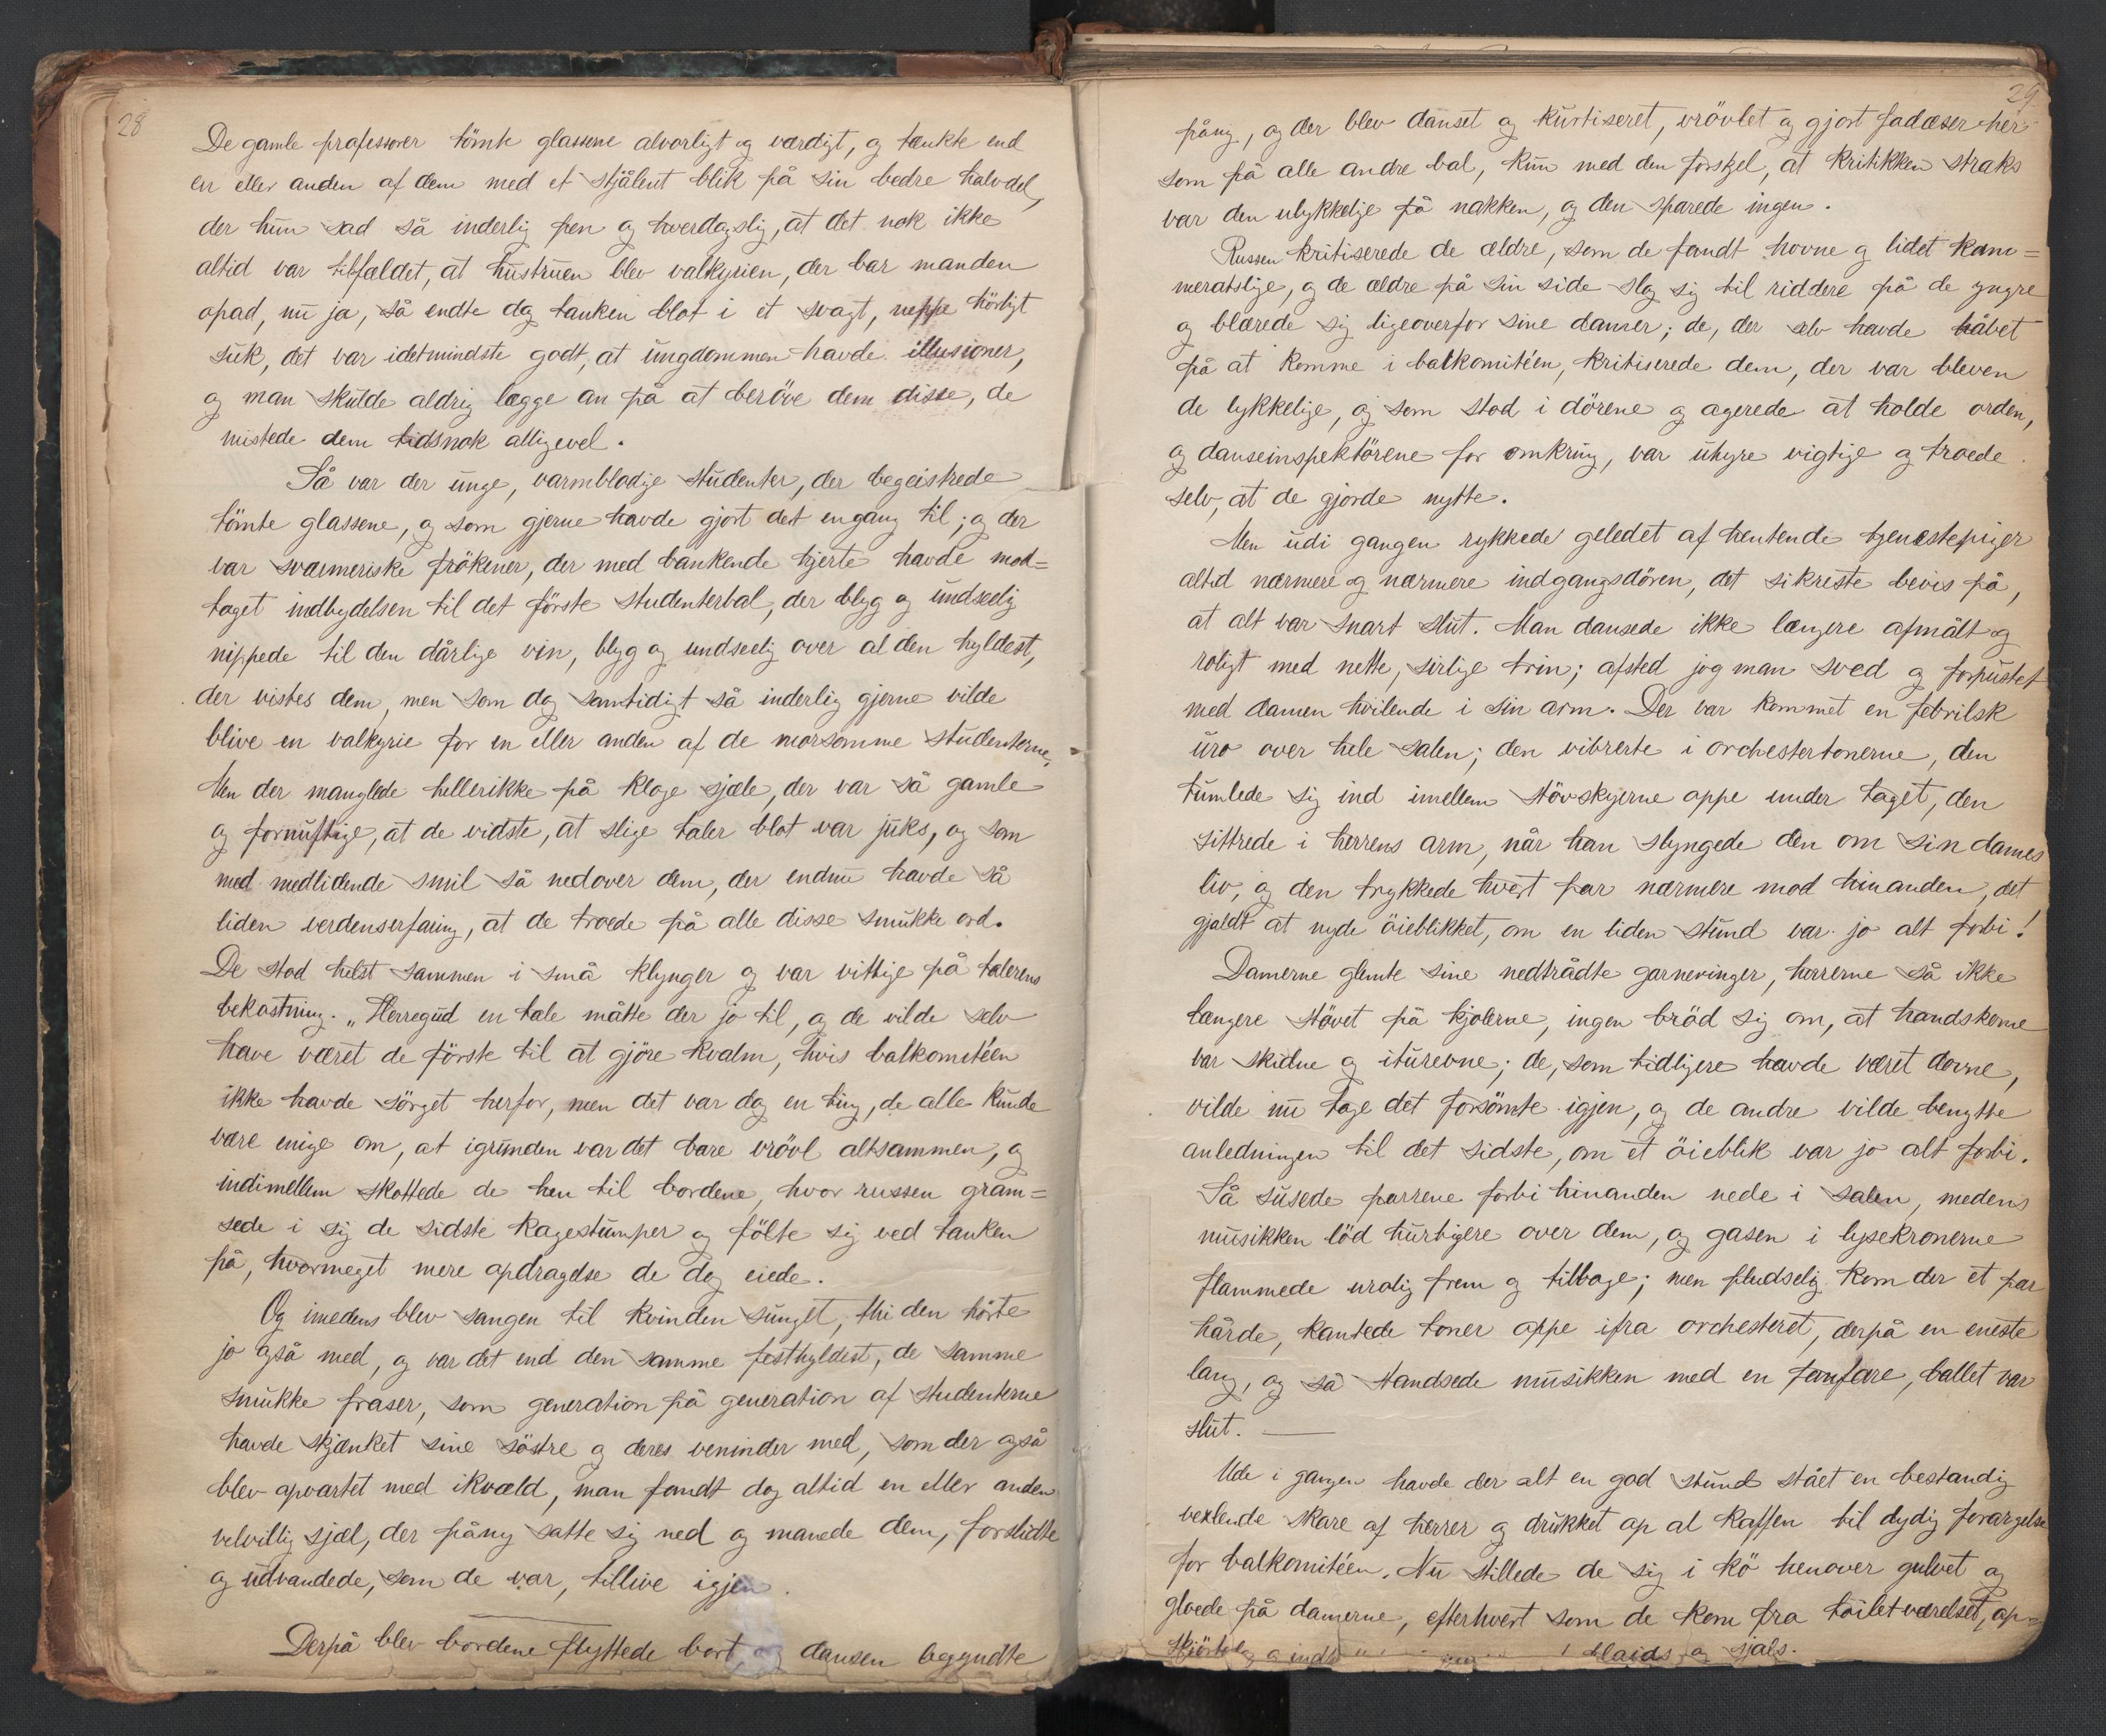 28
De gamle professorer tömte glassene alvorligt og værdigt, og tænkte end
en eller anden af dem med et stjålent blik på sin bedre halvdel,
der hun sad så inderlig pen og hverdagslig, at det nok ikke
altid var tilfældet, at hustruen blev valkyrien, der bar manden
opad, nu ja, så endte dog tanken blot i et svagt, neppe hörligt
suk, det var idetmindste godt, at ungdommen havde illusioner,
og man skulde aldrig lægge an på at beröve dem disse, de
mistede dem tidsnok alligevel.
Så var der unge, varmblodige studenter, der begeistrede
tömte glassene, og som gjerne havde gjort det engang til; og der
var sværmeriske frökener, der med bankende hjerte havde mod=
taget indbydelsen til det förste studenterbal, der blyg og undseelig
nippede til den dårlige vin, blyg og undseelig over al den hyldest,
der vistes dem, men som dog samtidigt så inderlig gjerne vilde
blive en valkyrie for en eller anden af de morsomme studenterne,
Men der manglede hellerikke på kloge sjæle, der var så gamle
og fornuftige, at de vidste, at slige taler blot var juks, og som
med medlidende smil så nedover dem, der endnu havde så
liden verdenserfaring, at de troede på alle disse smukke ord.
De stod helst sammen i små klynger og var vittige på talerens
bekostning. „Herregud en tale måtte der jo til, og de vilde selv
have været de förste til at gjöre kvalm, hvis balkomitéen
ikke havde sörget herfor, men det var dog en ting, de alle kunde
være enige om, at igrunden var det bare vrövl altsammen, og
indimellem skottede de hen til bordene, hvor russen gram=
sede i sig de sidste kagestumper og fölte sig ved tanken
på, hvormeget mere opdragelse de dog eiede.
Og imedens blev sangen til kvinden sunget, thi den hörte
jo også med, og var det end den samme festhyldest, de samme
smukke fraser, som generation på generation af studenterne
havde skjænket sine söstre og deres veninder med, som der også
blev opvartet med ikvæld, man fandt dog altid en eller anden
velvillig sjæl, der påny satte sig ned og manede dem, forslidte
og udvandede, som de var, tillive igjen.
Derpå blev bordene flyttede bort, og dansen begyndte
29
påny, og der blev danset og kurtiseret, vrövlet og gjort fadæser her
som på alle andre bal, kun med den forskjel, at kritikken straks
var den ulykkelige på nakken, og den sparede ingen.
Russen kritiserede de ældre, som de fandt hovne og lidet kam=
meratslige, og de ældre på sin side slog sig til riddere på de yngre
og blærede sig ligeoverfor sine damer; de, der selv havde håbet
på at komme i balkomitéen, kritiserede dem, der var bleven
de lykkelige, og som stod i dörene og agerede at holde orden,
og danseinspektörene for omkring, var uhyre vigtige og troede
selv, at de gjorde nytte.
Men udi gangen rykkede geledet af hentende tjenestepiger
altid nærmere og nærmere indgangsdören, det sikreste bevis på,
at alt var snart slut. Man dansede ikke længere afmålt og
roligt med nette, sirlige trin; afsted jog man sved og forpustet
med damen hvilende i sin arm. Der var kommet en febrilsk
uro over hele salen; den vibrerte i orchestertonerne, den
tumlede sig ind imellem stövskyerne oppe under taget, den
sittrede i herrens arm, når han slyngede den om sin dames
liv, og den trykkede hvert par nærmere mod hinanden, det
gjaldt at nyde öieblikket, om en liden stund var jo alt forbi!
Damerne glemte sine nedtrådte garneringer, herrerne så ikke
længere stövet på kjolerne, ingen bröd sig om, at handskerne
var skidne og iturevne; de, som tidligere havde været dovne,
vilde nu tage det forsömte igjen, og de andre vilde benytte
anledningen til det sidste, om et öieblik var jo alt forbi.
Så susede parrene forbi hinanden nede i salen, medens
musikken löd hurtigere over dem, og gasen i lysekronerne
flammede urolig frem og tilbage; men pludselig kom der et par
hårde, kantede toner oppe ifra orchesteret, derpå en eneste
lang, og så standsede musikken med en fanfare, ballet var
slut. —
Ude i gangen havde der alt en god stund stået en bestandig
vexlende skare af herrer og drukket op al kaffen til dydig forargelse
for balkomitéen. Nu stillede de sig i kö henover gulvet og
gloede på damerne, efterhvert som de kom fra toiletværelset, op=
og plaids og sjals.